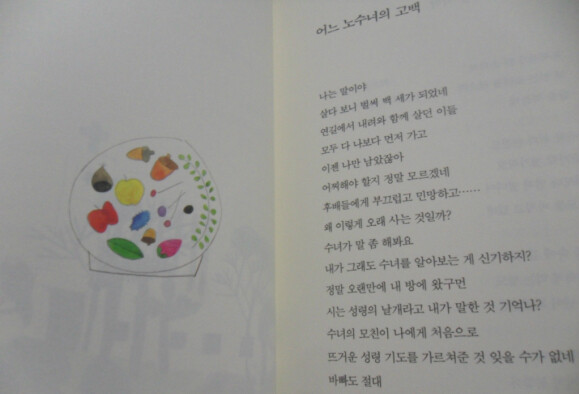 어느 노수녀의 고백
나는 말이야
살다 보니 벌써 백 세가 되었네
연길에서 내려와 함께 살던 이들
모두 다 나보다 먼저 가고
이젠 나만 남았잖아
어찌해야 할지 정말 모르겠네
후배들에게 부끄럽고 민망하고……
왜 이렇게 오래 사는 것일까?
수녀가 말 좀 해봐요
내가 그래도 수녀를 알아보는 게 신기하지?
정말 오랜만에 내 방에 왔구먼
시는 성령의 날개라고 내가 말한 것 기억나?
수녀의 모친이 나에게 처음으로
뜨거운 성령 기도를 가르쳐준 것 잊을 수가 없네
바빠도 절대